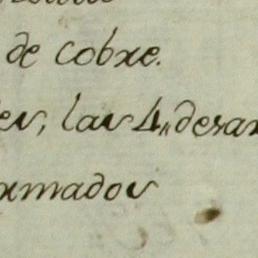 de cobre.
es, las 4,, desar
rmados